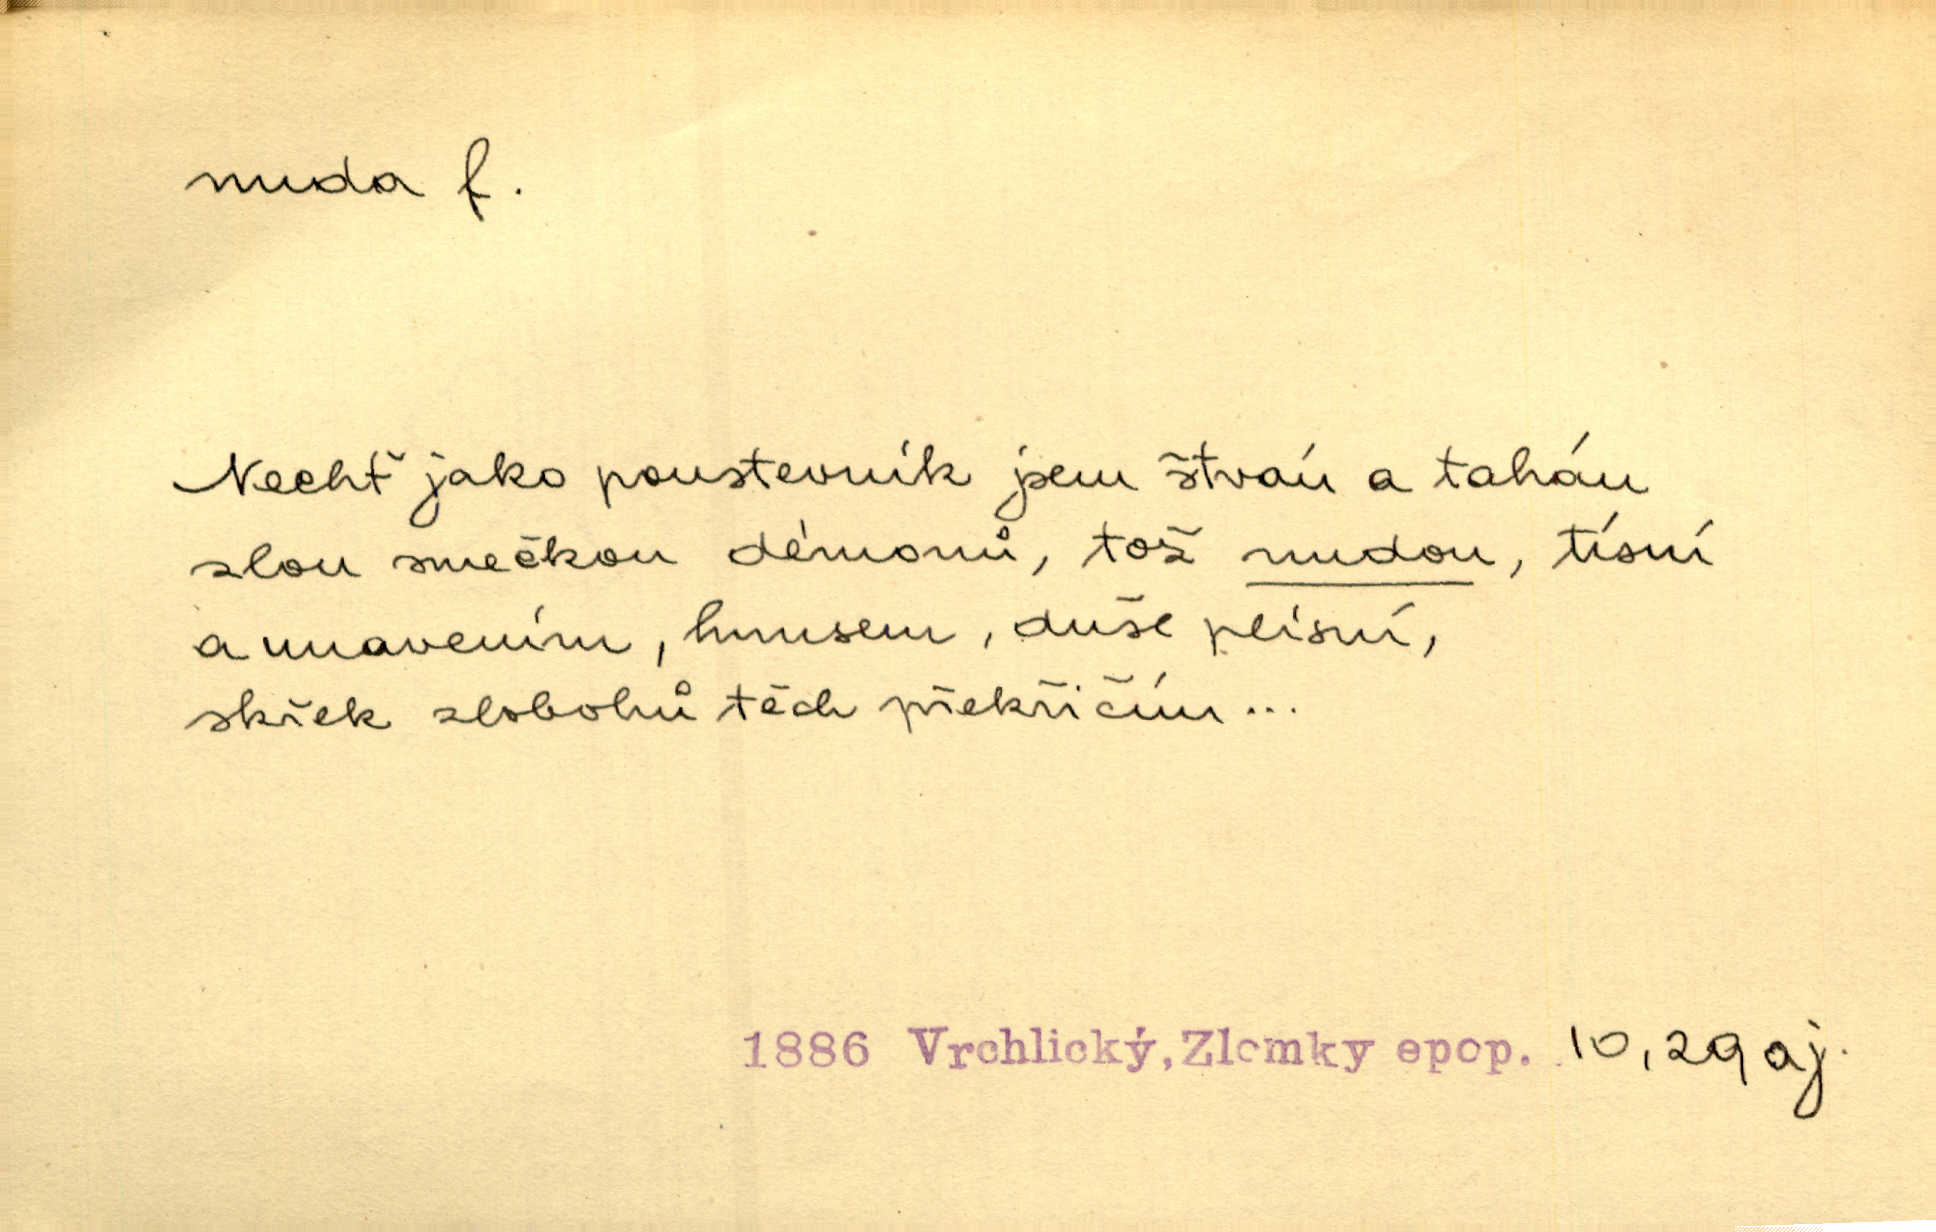 nuda f.
Nechť jako poustevník jsem štván a tahán
zlou smečkou démonů, tož nudou, tísní
a unavením, hnusem, duše plísní,
skřek zlobohů těch překřičím...
1886 Vrchlický, Zlomky epop. 10, 29 aj.